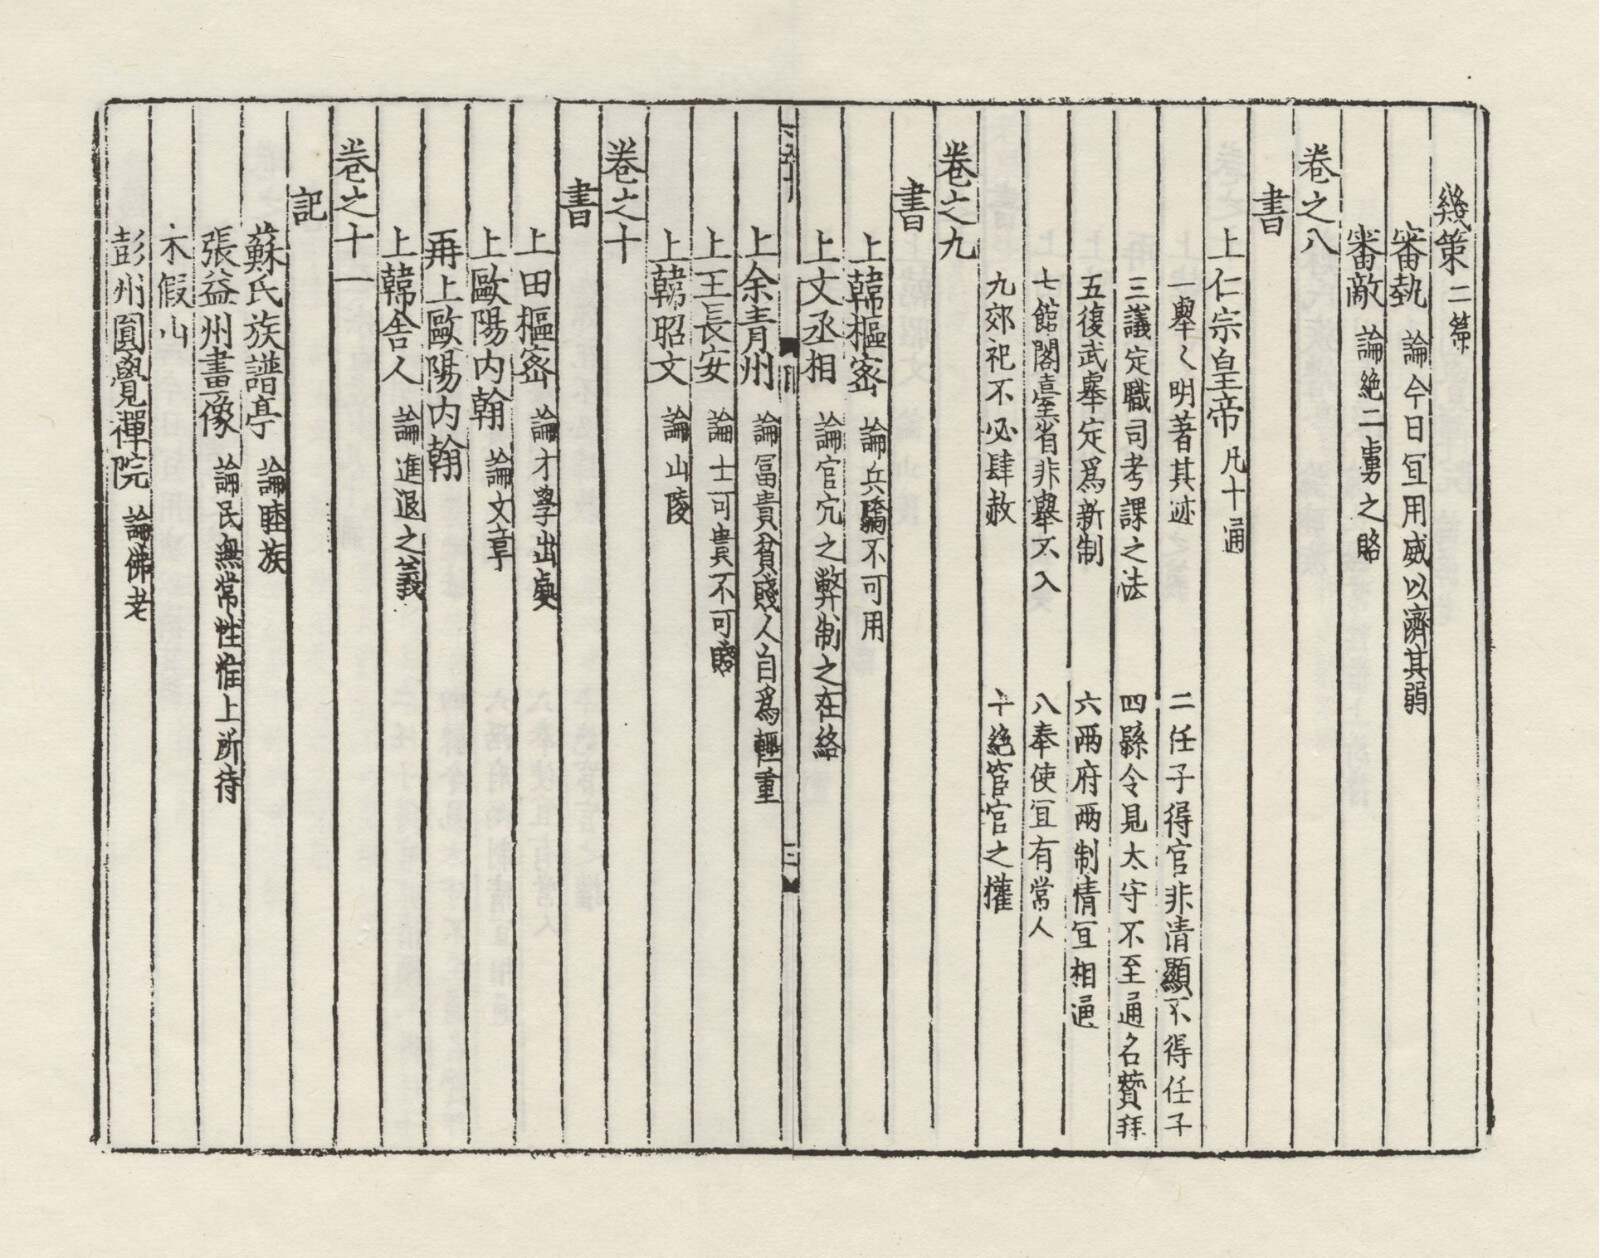 幾策 二篇
審埶 論今日冝用威以濟其弱
審敵 論絶二虜之賂
卷之八
書
上仁宗皇帝 凡十通
一舉〻明著其迹 二任子得官非清顯不得任子
三議定職司考課之法 四縣令見太守不至通名贊拜
五復武舉定爲新制 六兩府兩制情冝相通
七館閣臺省非舉不入 八奉使冝有常人
九郊祀不必肆赦 十絶宦官之權
卷之九
書
上韓樞密 論兵驕不可用
上文丞相 論官冗之弊制之在絡
三
上余青州 論冨貴貧賤人自爲輕重
上王長安 論士可貴不可賤
上韓昭文 論山陵
卷之十
書
上田樞密 論才學出處
上歐陽内翰 論文章
再上歐陽内翰
上韓舍人 論進退之義
卷之十一
記
蘇氏族譜亭 論睦族
張益州畫像 論民無常性惟上所待
木假山
彭州圓覺禪院 論佛老